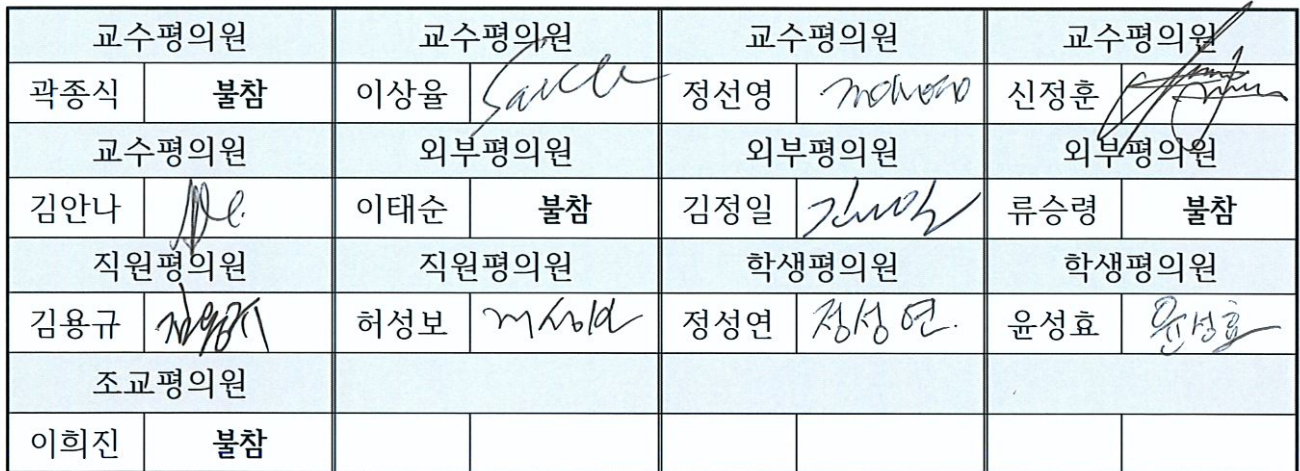 교수평의원 교수평의원 교수평의원 교수평의원
곽종식 불참 이상율 정선영 신정훈
교수평의원 외부평의원 외부평의원 외부평의원
김안나 이태순 불참 김정일 류승령 불참
직원평의원 직원평의원 학생평의원 학생평의원
김용규 허성보 정성연 정성연 윤성효 윤성효
조교평의원
이희진 불참